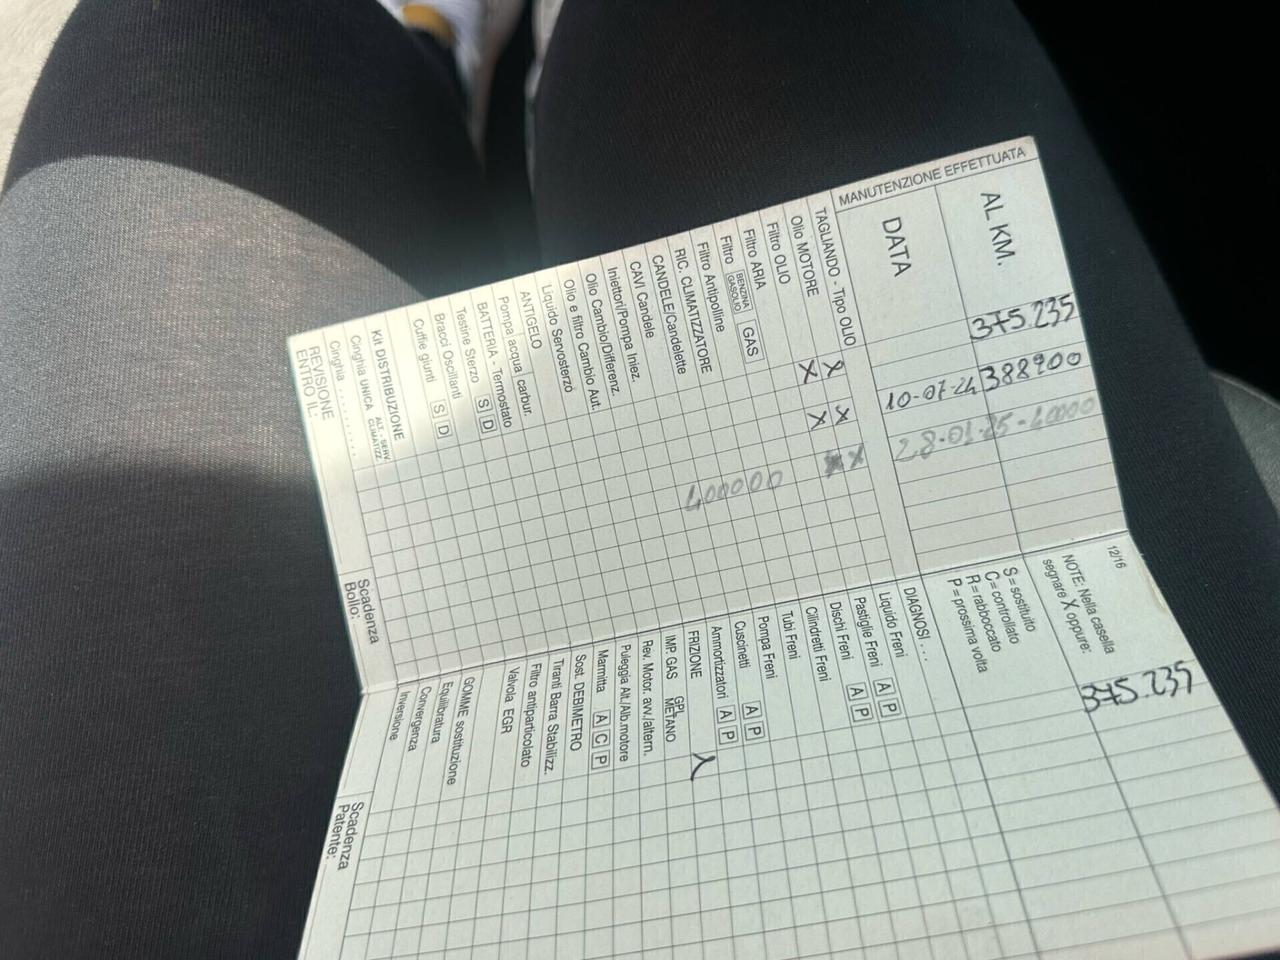 MANUTENZIONE EFFETTUATA
AL KM.
375.235
388900
DATA
10-07-24
TAGLIANDO - Tipo OLIO
Olio MOTORE
Filtro OLIO
Filtro ARIA
Filtro BENZINA GASOLIO GAS
Filtro Antipolline
RIC. CLIMATIZZATORE
CANDELE/Candelette
CAVI Candele
Iniettori/Pompa Iniez.
Olio Cambio/Differenz.
Olio e filtro Cambio Aut.
Liquido Servosterzo
ANTIGELO
Pompa acqua carbur.
BATTERIA - Termostato
Testine Sterzo S D
Bracci Oscillanti
Cuffie giunti S D
Kit DISTRIBUZIONE
Cinghia UNICA ALT. - SERV. CLIMATIZZ.
Cinghia ..........
REVISIONE
ENTRO IL:
Scadenza
Bollo:
12/16
NOTE: Nella casella
segnare X oppure:
S = sostituito
C = controllato
R = rabboccato
P = prossima volta
375.235
DIAGNOSI . . .
Liquido Freni
Pastiglie Freni A P
Dischi Freni A P
Cilindretti Freni
Tubi Freni
Pompa Freni
Cuscinetti A P
Ammortizzatori A P
FRIZIONE
IMP. GAS GPL METANO
Rev. Motor. avv./altern.
Puleggia Alt./Alb.motore
Marmitta A C P
Sost. DEBIMETRO
Tiranti Barra Stabilizz.
Filtro antiparticolato
Valvola EGR
GOMME sostituzione
Equilibratura
Convergenza
Inversione
Scadenza
Patente: